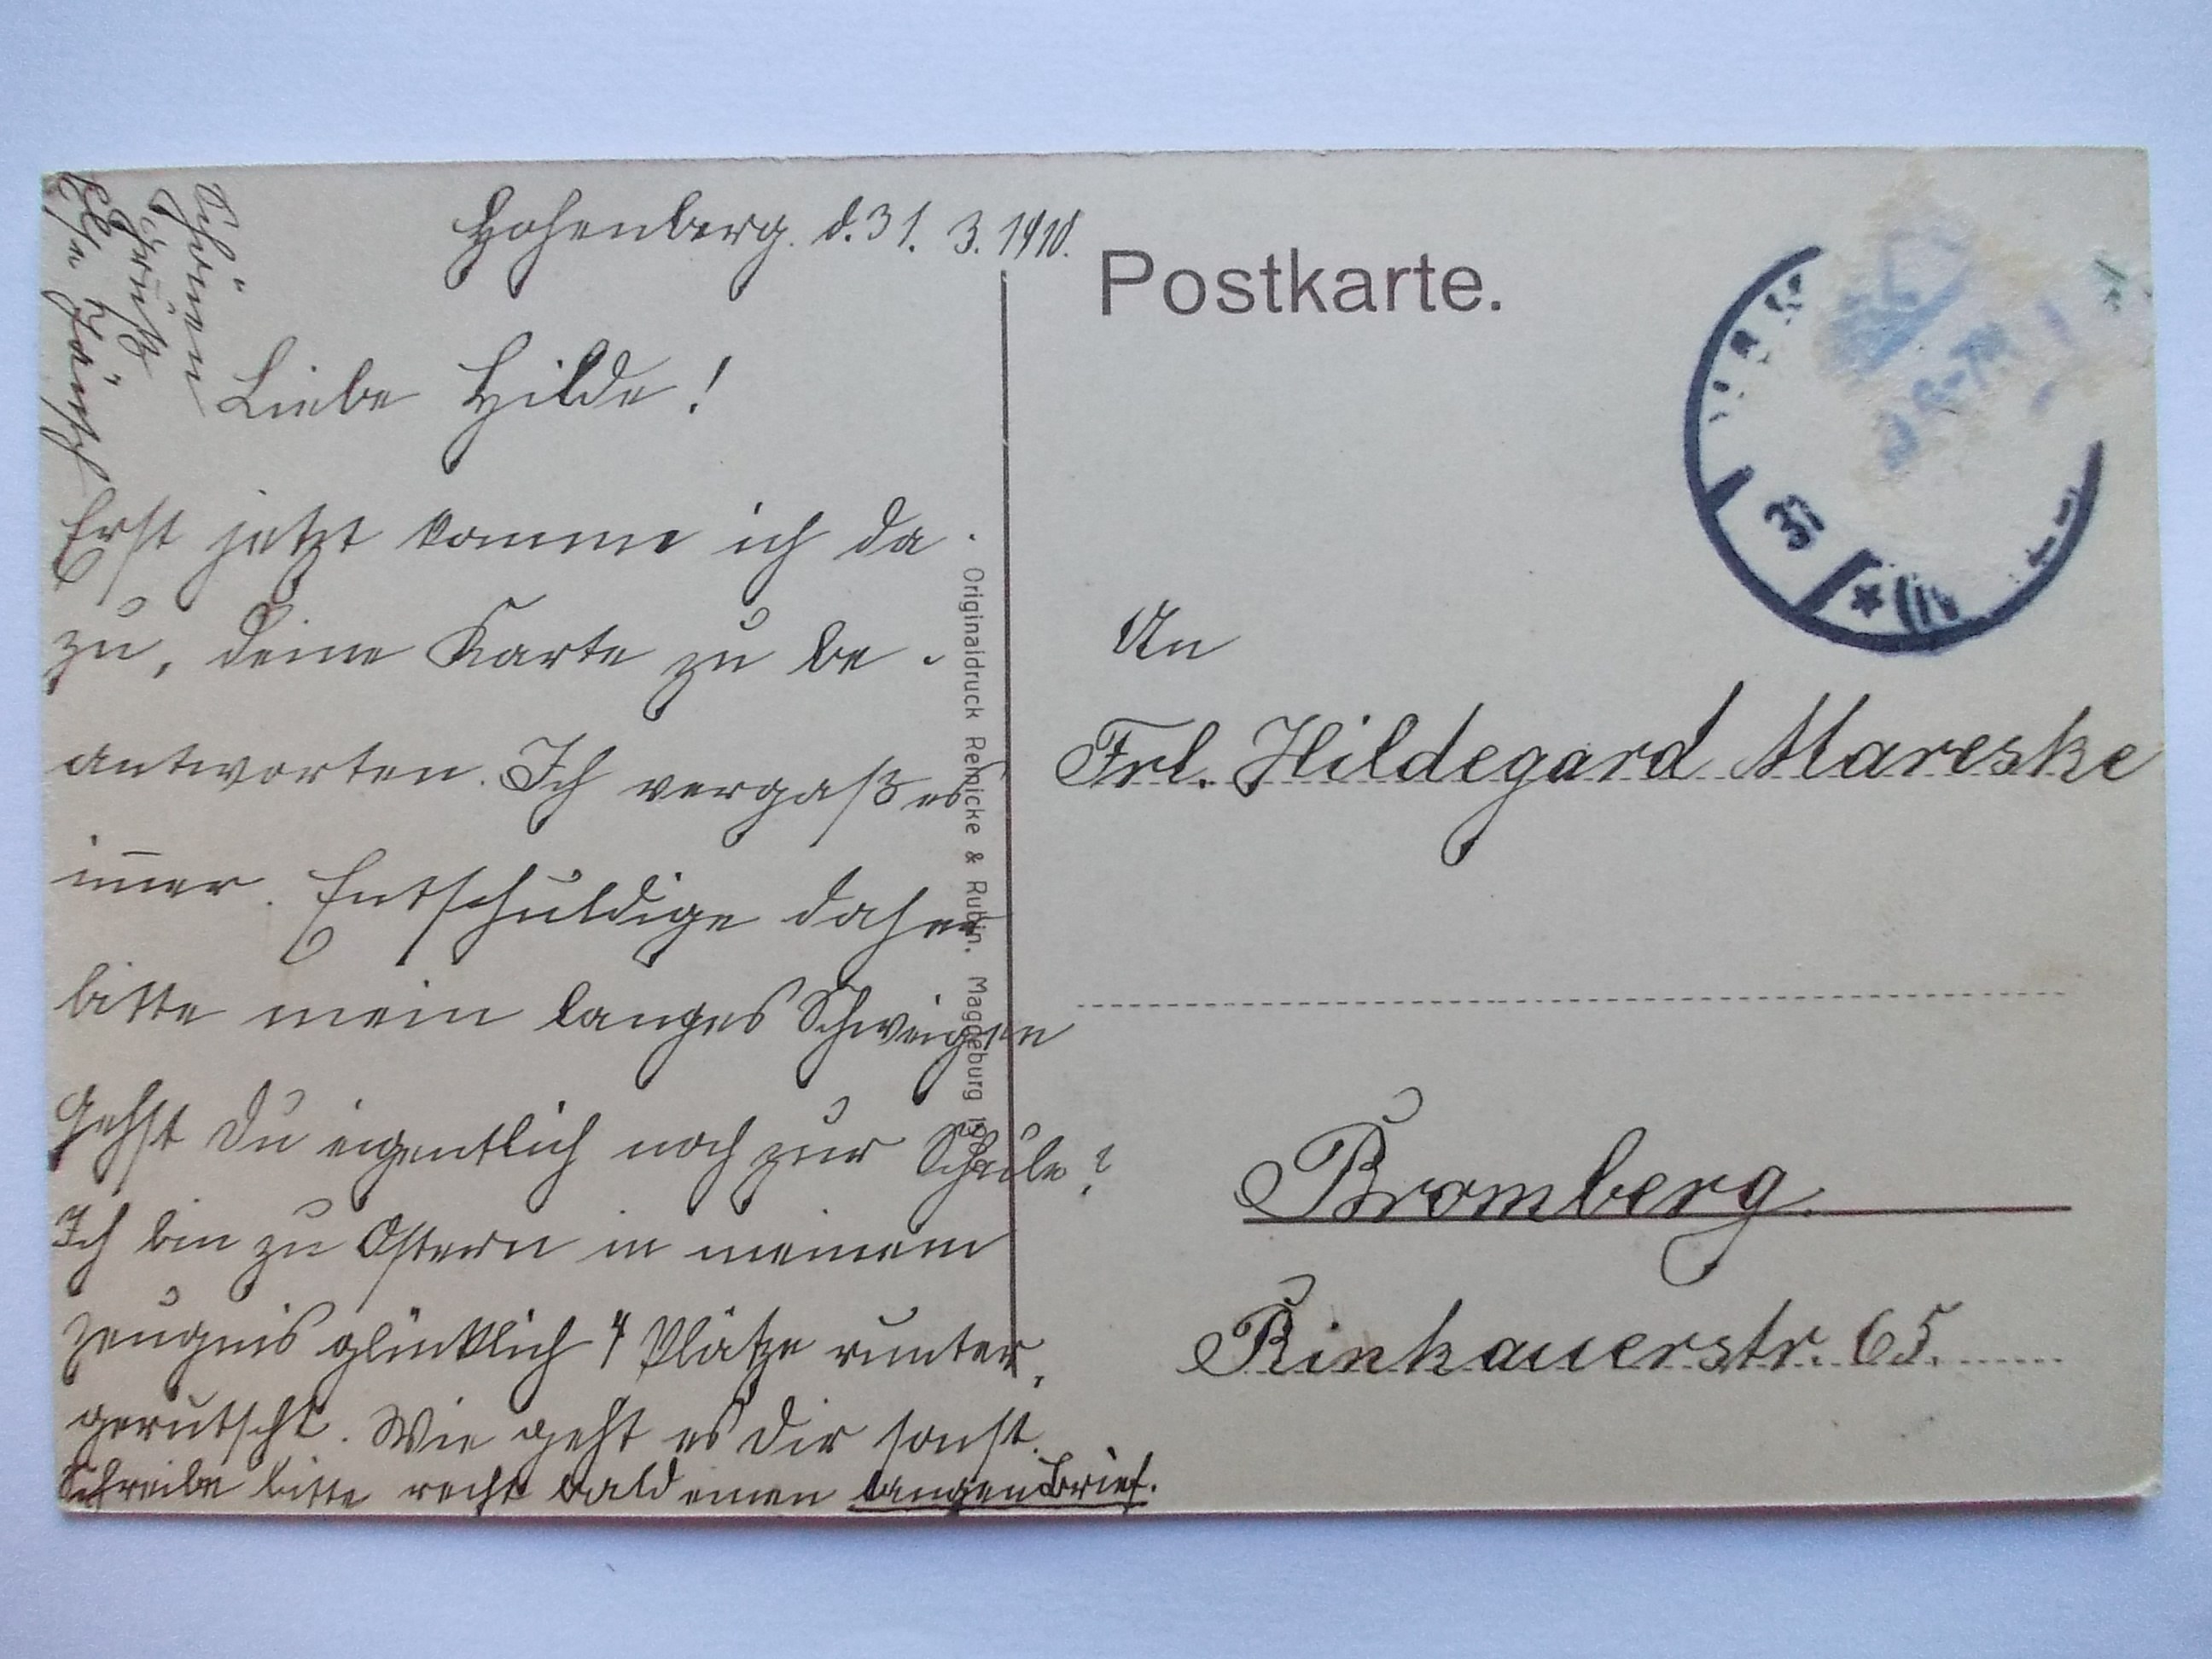 Hohenberg. d. 31. 3. 1910.
Liebe Hilde!
Erst jetzt komme ich da-
zu, deine Karte zu be-
antworten. Ich vergaß es
im̄er. Entschuldige daher
bitte mein langes Schweigen
Gehst du eigentlich noch zur Schule?
Ich bin zu Ostern in meinem
Zeugnis glücklich 4 Plätze runter,
gerutscht. Wie geht es Dir sonst.
Schreibe bitte recht bald einen langen Brief.
Schönen
Gruß
Else
Originaldruck Reinicke & Rubin, Magdeburg
Postkarte.
31
An
Frl. Hildegard Mareske
Bromberg.
Rinkauerstr. 65.